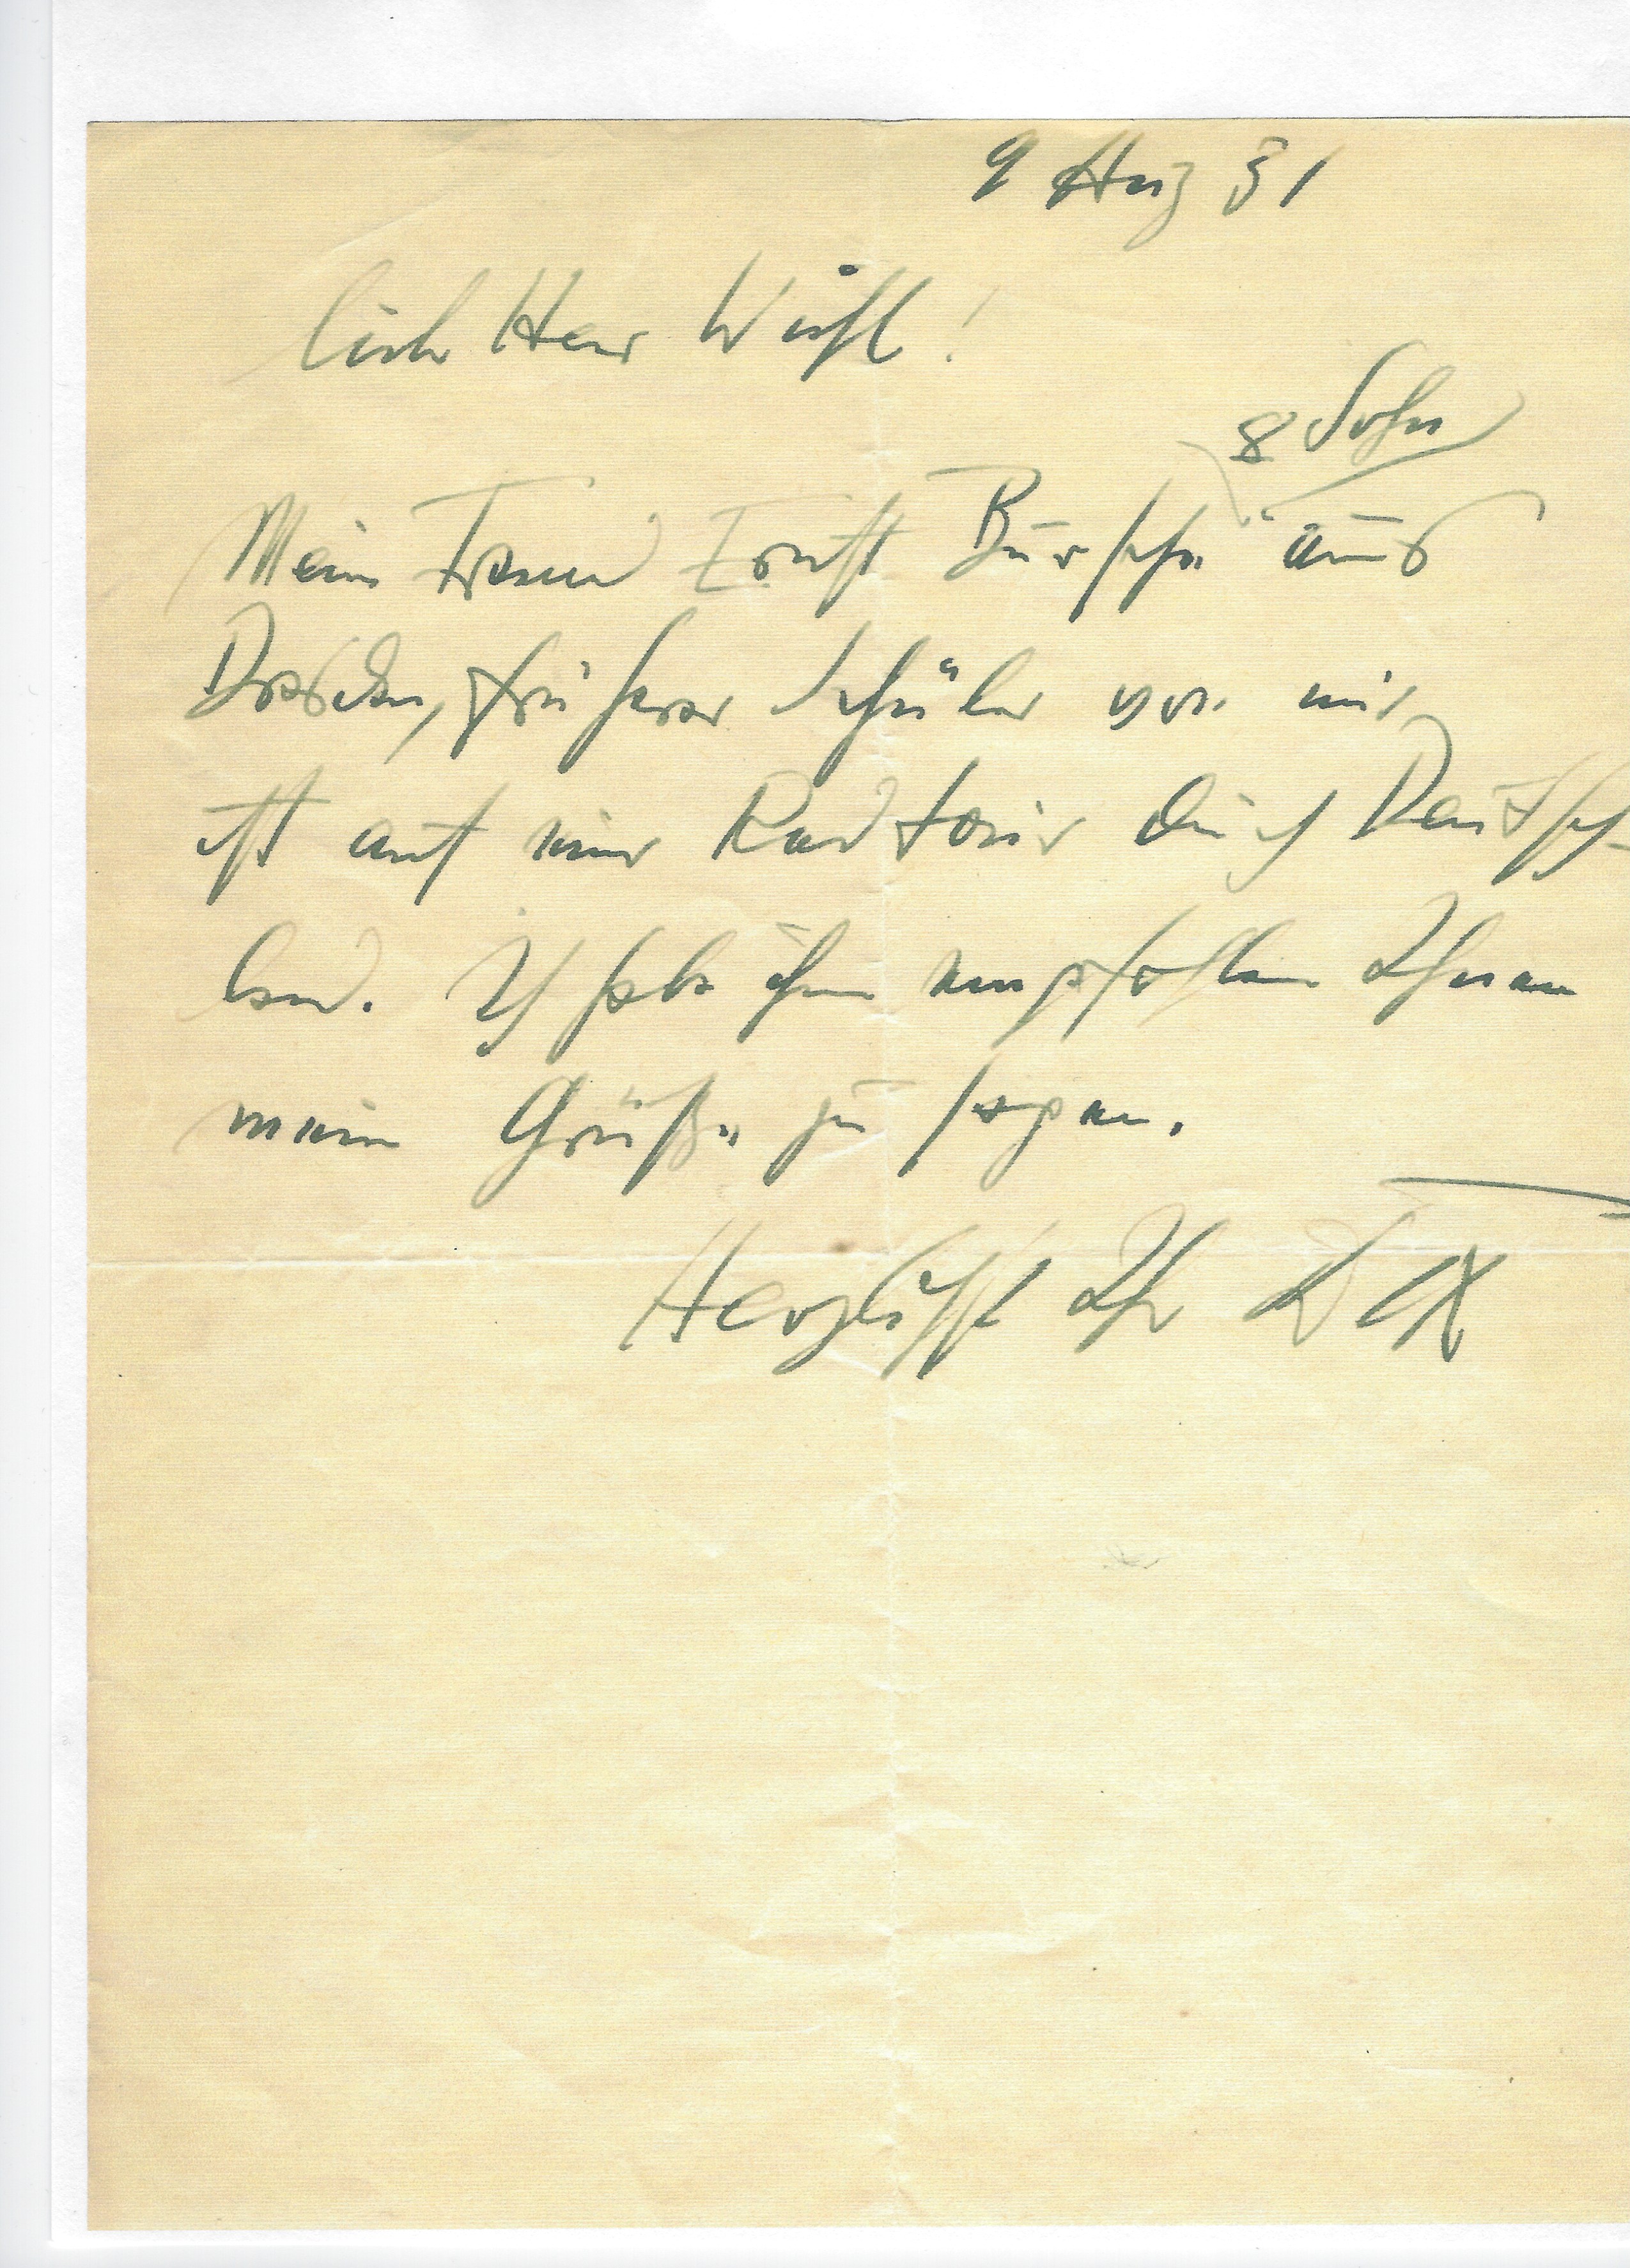 9 Aug 51
Lieber Herr
& Sohn
Mein Freund Ernst Bursche aus
Dresden, früherer Schüler von mir
ist auf einer Radtour durch Deutsch-
land. Ich habe ihm empfohlen Ihnen
meine Grüße zu sagen.
Herzlichst Ihr Dix